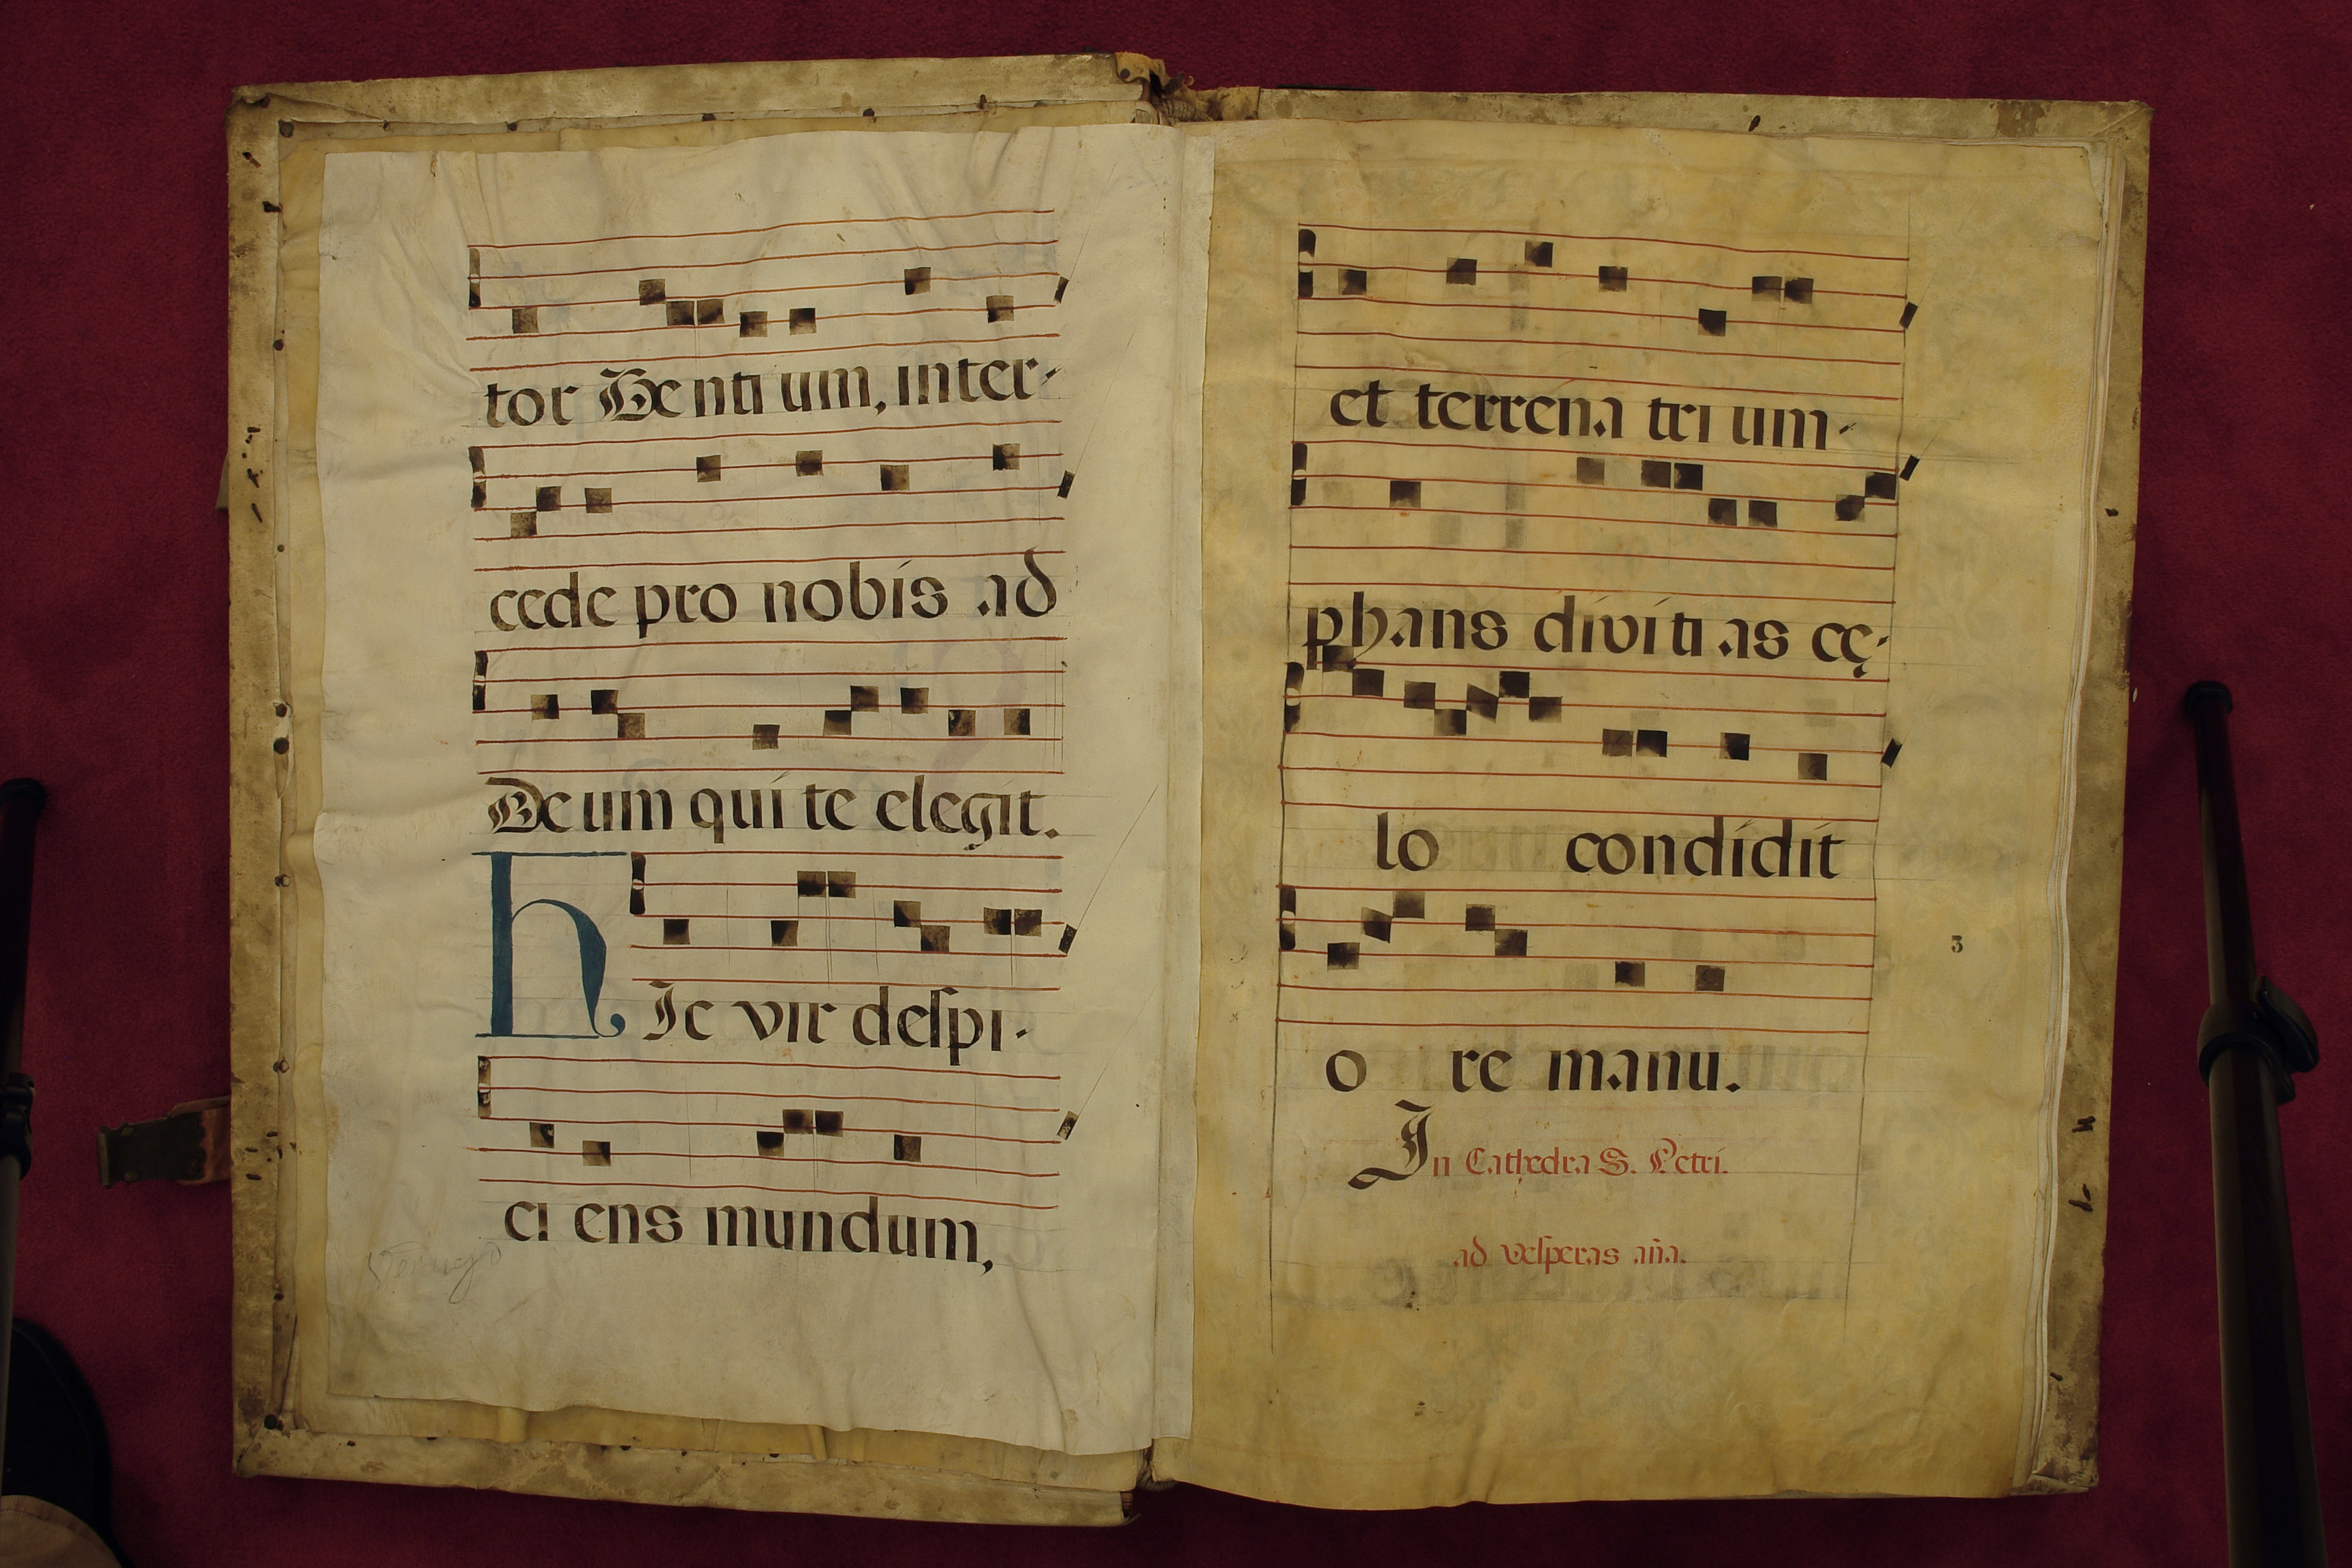 tor Genti um, inter-
cede pro nobis ad
Deum qui te elegit.
hIc vir despi-
ci ens mundum,
et terrena tri um-
phans divíti as cę-
lo condidit
o re manu.
In Cathedra S. Petri.
3
ad vesperas aña.